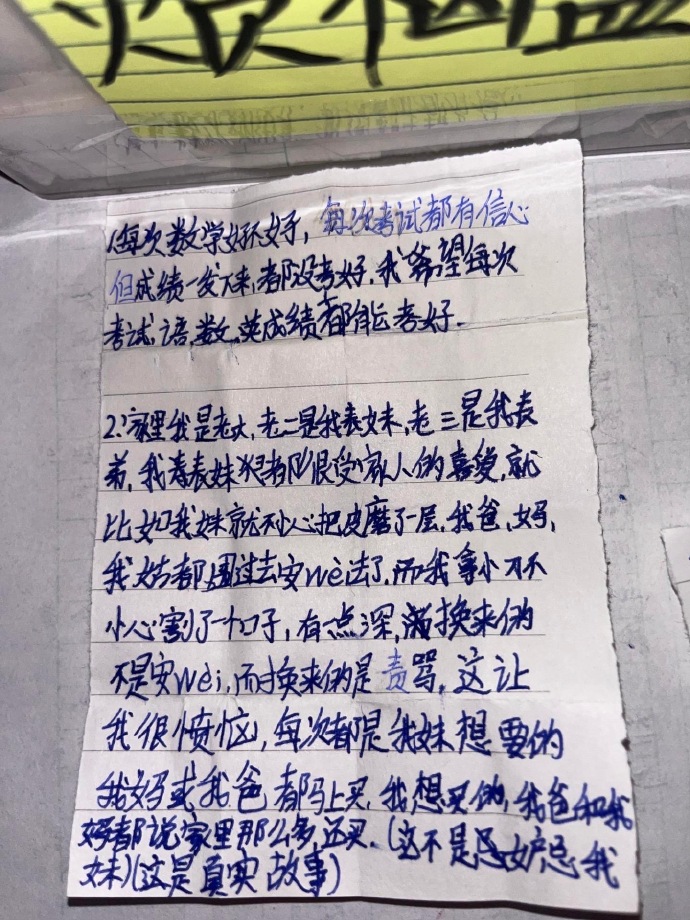 烦恼
1.每次数学好不好，每次考试都有信心
但成绩一发下来，都没考好.我希望每次
考试，语，数，英成绩都能考好.
2.家里我是老大，老二是我表妹，老三是我表
弟，我表妹都很受家人的喜爱，就
比如我妹就不小心把皮磨了一层，我爸，妈，
我姑都围过去安wèi去了，而我拿小刀不
小心割了个口子，有一点深，换来的
不是安wèi，而换来的是责骂，这让
我很愤恼，每次都是我妹想要的
我妈或我爸都马上买，我想买的，我爸和我
妈都说家里那么多还买.(这不是忌妒忌我
妹)(这是真实故事)